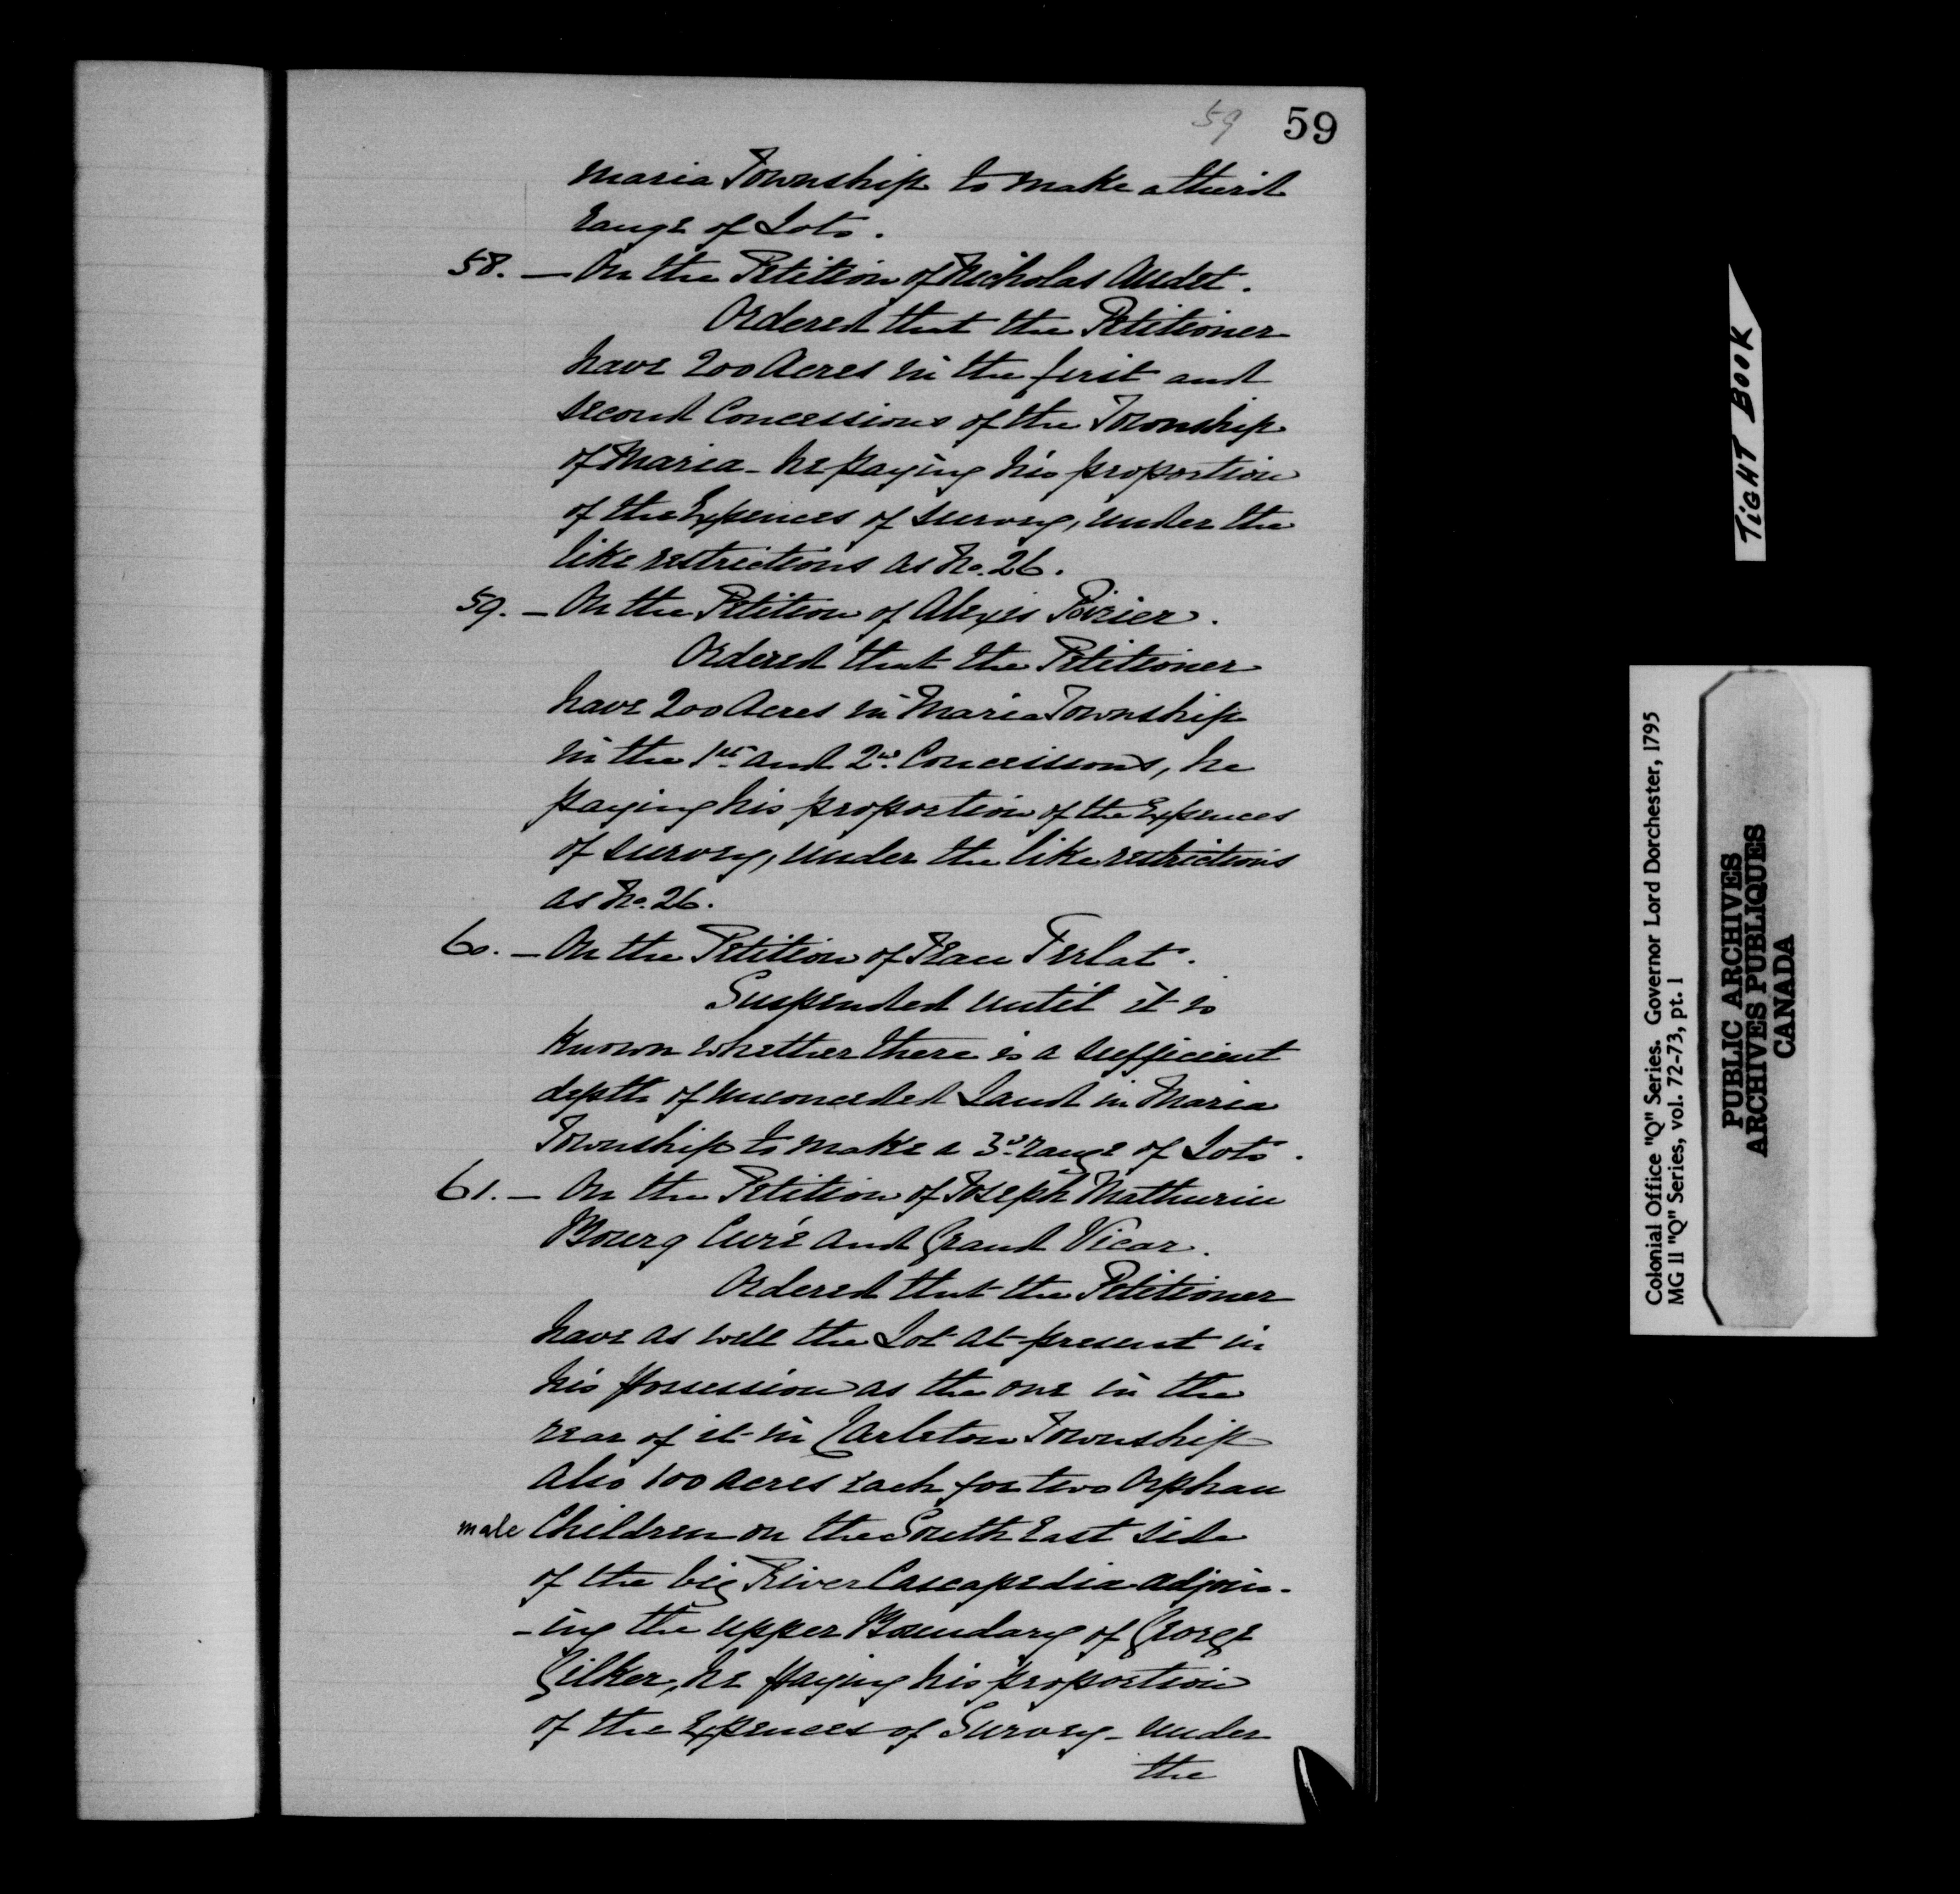 59 59
Maria Township to make a third
range of Lots.
58. — On the Petition of Nicholas Audet.
Ordered that the Petitioner
have 200 Acres in the first and
second Concessions of the Township
of Maria - he paying his proportion
of the Expences of survey, under the
like restrictions as No. 26.
59. — On the Petition of Alexis Poirier.
Ordered that the Petitioner
have 200 Acres in Maria Township
in the 1st and 2nd Concessions, he
paying his proportion of the Expences
of survey, under the like restrictions
as No. 26.
60. — On the Petition of Jean Ferlat.
Suspended until it is
known whether there is a sufficient
depth of unconceded Land in Maria
Township to make a 3d range of Lots.
61. — On the Petition of Joseph Mathurin
Bourg Curé and Grand Vicar.
Ordered that the Petitioner
have as well the Lot at present in
his possession as the one in the
rear of it in Carleton Township
also 100 acres each for two Orphan
male Children on the South East side
of the big River Cascapedia adjoin-
-ing the upper Boundary of George
Gilker, he paying his proportion
of the Expences of Survey - under
the
TIGHT BOOK
Colonial Office "Q" Series. Governor Lord Dorchester, 1795
MG 11 "Q" Series, vol. 72-73, pt. 1
PUBLIC ARCHIVES
ARCHIVES PUBLIQUES
CANADA